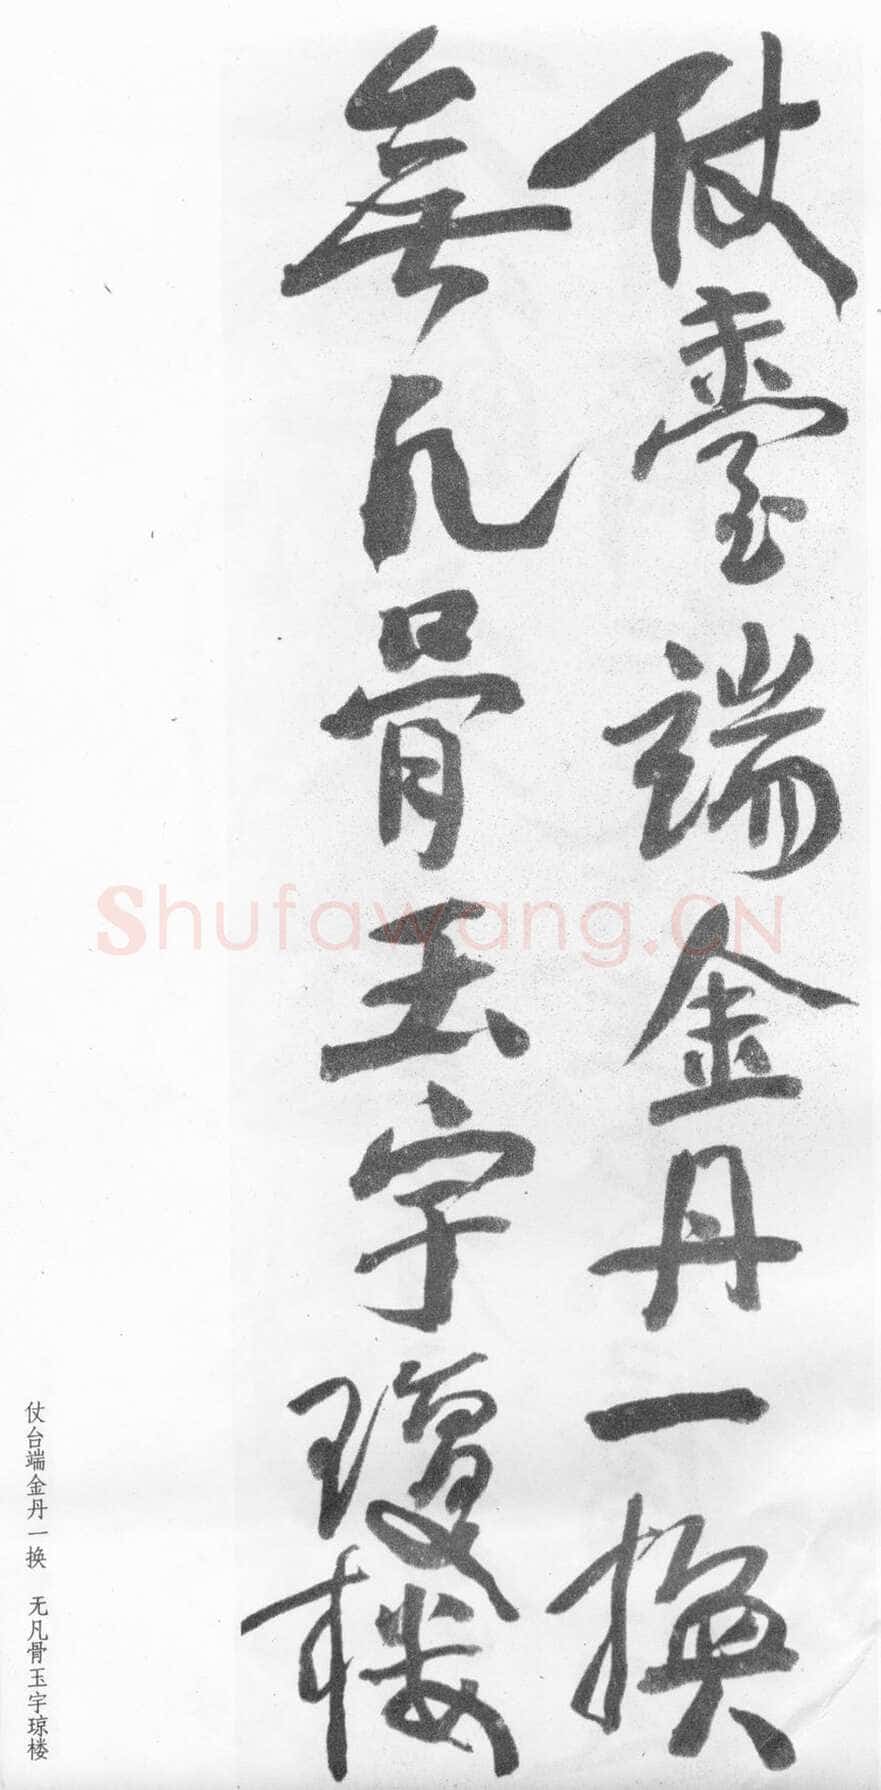 仗臺端金丹一換
無凡骨玉宇瓊楼
仗台端金丹一换 无凡骨玉宇琼楼
Shufawang.CN